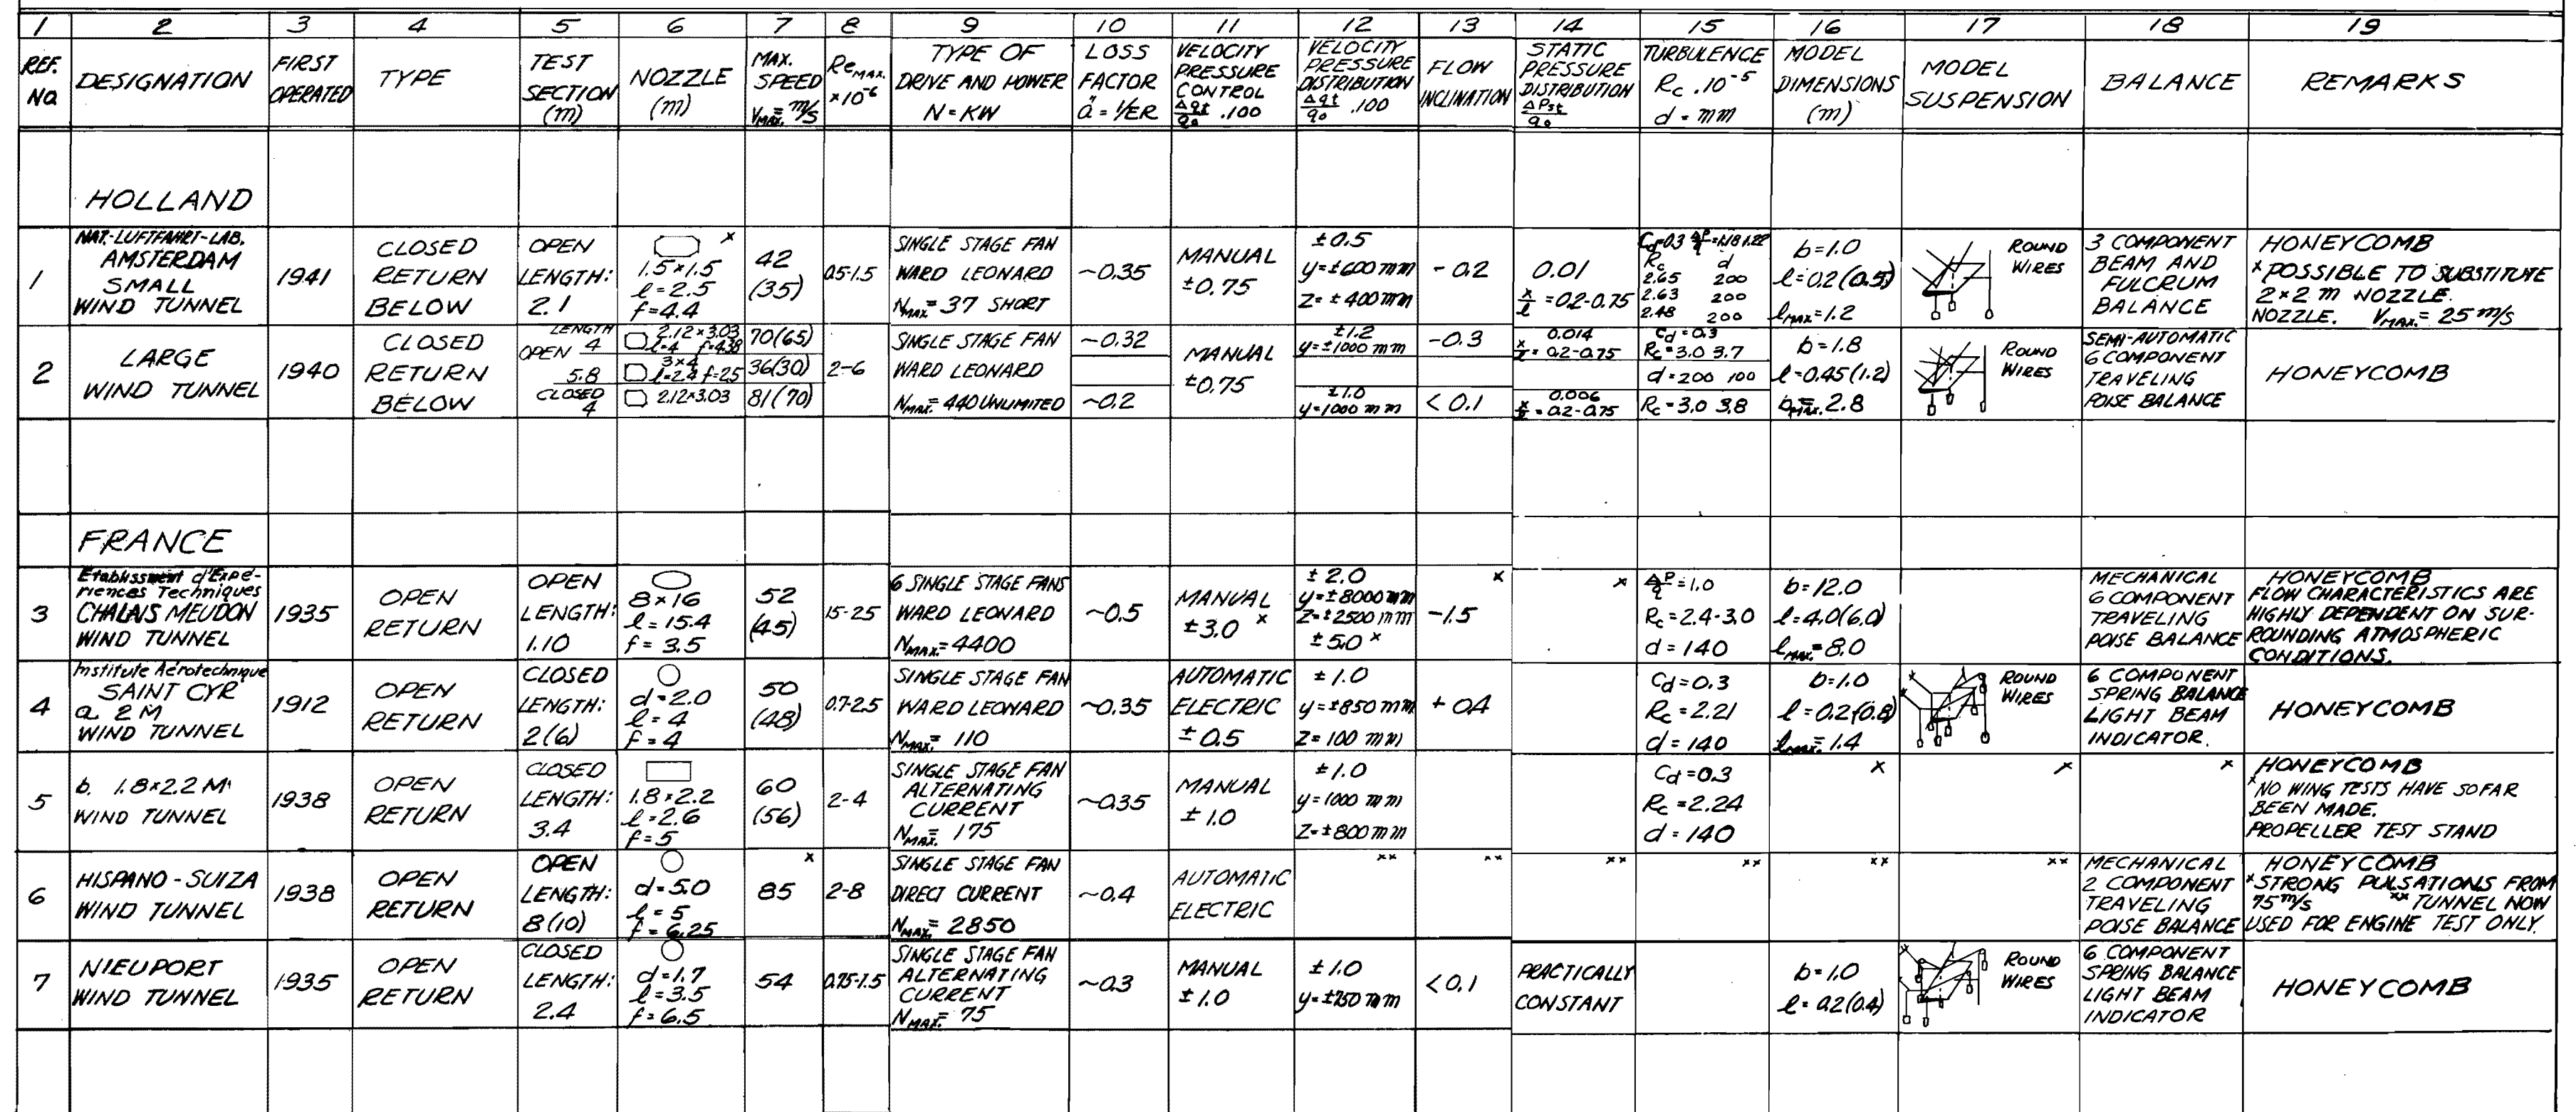 1 2 3 4 5 6 7 8 9 10 11 12 13 14 15 16 17 18 19
REF. NO.
DESIGNATION
FIRST
OPERATED
TYPE
TEST
SECTION
(m)
NOZZLE
(m)
MAX.
SPEED
VMAX. = m/s
ReMAX.
×10-6
TYPE OF
DRIVE AND POWER
N = KW
LOSS
FACTOR
ä = 1/ER
VELOCITY
PRESSURE
CONTROL
Δqt/q0 .100
VELOCITY
PRESSURE
DISTRIBUTION
Δqt/q0 .100
FLOW
INCLINATION
STATIC
PRESSURE
DISTRIBUTION
ΔPst/q0
TURBULENCE
Rc .10-5
d = mm
MODEL
DIMENSIONS
(m)
MODEL
SUSPENSION
BALANCE
REMARKS
HOLLAND
1
NAT.-LUFTFAHRT-LAB.
AMSTERDAM
SMALL
WIND TUNNEL
1941
CLOSED
RETURN
BELOW
OPEN
LENGTH:
2.1
×
1.5×1.5
l = 2.5
f = 4.4
42
(35)
0.5-1.5
SINGLE STAGE FAN
WARD LEONARD
NMAX = 37 SHORT
~0.35
MANUAL
±0.75
±0.5
y = ±600 mm
Z = ±400 mm
-0.2
0.01
x/l = 0.2-0.75
Cd=0.3
Rc d
2.65 200
2.63 200
2.48 200
b = 1.0
l = 0.2 (0.5)
lMAX = 1.2
ROUND
WIRES
3 COMPONENT
BEAM AND
FULCRUM
BALANCE
HONEYCOMB
× POSSIBLE TO SUBSTITUTE
2×2 m NOZZLE.
NOZZLE. VMAX. = 25 m/s
2
LARGE
WIND TUNNEL
1940
CLOSED
RETURN
BELOW
LENGTH
OPEN 4
5.8
CLOSED
4
2.12×3.03
l=4 f=4.38
3×4
l=2.4 f=2.5
2.12×3.03
70(65)
36(30)
81(70)
2-6
SINGLE STAGE FAN
WARD LEONARD
NMAX. = 440 UNLIMITED
~0.32
~0.2
MANUAL
±0.75
±1.2
y = ±1000 mm
±1.0
y = 1000 mm
-0.3
< 0.1
0.014
= 0.2-0.75
0.006
= 0.2-0.75
Cd = 0.3
Rc = 3.0 3.7
d = 200 100
Rc = 3.0 3.8
b = 1.8
l = 0.45 (1.2)
bMAX. = 2.8
ROUND
WIRES
SEMI-AUTOMATIC
6 COMPONENT
TRAVELING
POISE BALANCE
HONEYCOMB
FRANCE
3
Etablissment d'Expé-
riences Techniques
CHALAIS MEUDON
WIND TUNNEL
1935
OPEN
RETURN
OPEN
LENGTH:
1.10
8×16
l = 15.4
f = 3.5
52
(45)
15-25
6 SINGLE STAGE FANS
WARD LEONARD
NMAX. = 4400
~0.5
MANUAL
±3.0 ×
± 2.0
y = ±8000 mm
Z = ±2500 mm
± 5.0 ×
×
-1.5
×
ΔP/q = 1.0
Rc = 2.4-3.0
d = 140
b = 12.0
l = 4.0 (6.0)
lMAX. = 8.0
MECHANICAL
6 COMPONENT
TRAVELING
POISE BALANCE
HONEYCOMB
FLOW CHARACTERISTICS ARE
HIGHLY DEPENDENT ON SUR-
ROUNDING ATMOSPHERIC
CONDITIONS.
4
Institute Aérotechnique
SAINT CYR
a. 2 M
WIND TUNNEL
1912
OPEN
RETURN
CLOSED
LENGTH:
2(6)
d = 2.0
l = 4
f = 4
50
(48)
0.7-2.5
SINGLE STAGE FAN
WARD LEONARD
NMAX. = 110
~0.35
AUTOMATIC
ELECTRIC
± 0.5
± 1.0
y = ±850 mm
Z = 100 mm
+ 0.4
Cd = 0.3
Rc = 2.21
d = 140
b = 1.0
l = 0.2 (0.8)
lMAX. = 1.4
ROUND
WIRES
6 COMPONENT
SPRING BALANCE
LIGHT BEAM
INDICATOR.
HONEYCOMB
5
b. 1.8×2.2 M
WIND TUNNEL
1938
OPEN
RETURN
CLOSED
LENGTH:
3.4
1.8×2.2
l = 2.6
f = 5
60
(56)
2-4
SINGLE STAGE FAN
ALTERNATING
CURRENT
NMAX. = 175
~0.35
MANUAL
± 1.0
± 1.0
y = 1000 mm
Z = ±800 mm
Cd = 0.3
Rc = 2.24
d = 140
×
×
×
HONEYCOMB
× NO WING TESTS HAVE SO FAR
BEEN MADE.
PROPELLER TEST STAND
6
HISPANO-SUIZA
WIND TUNNEL
1938
OPEN
RETURN
OPEN
LENGTH:
8(10)
d = 5.0
l = 5
f = 6.25
×
85
2-8
SINGLE STAGE FAN
DIRECT CURRENT
NMAX. = 2850
~0.4
AUTOMATIC
ELECTRIC
××
××
××
××
××
××
MECHANICAL
2 COMPONENT
TRAVELING
POISE BALANCE
HONEYCOMB
× STRONG PULSATIONS FROM
75 m/s ×× TUNNEL NOW
USED FOR ENGINE TEST ONLY.
7
NIEUPORT
WIND TUNNEL
1935
OPEN
RETURN
CLOSED
LENGTH:
2.4
d = 1.7
l = 3.5
f = 6.5
54
0.75-1.5
SINGLE STAGE FAN
ALTERNATING
CURRENT
NMAX. = 75
~0.3
MANUAL
± 1.0
± 1.0
y = ±750 mm
< 0.1
PRACTICALLY
CONSTANT
b = 1.0
l = 0.2 (0.4)
ROUND
WIRES
6 COMPONENT
SPRING BALANCE
LIGHT BEAM
INDICATOR
HONEYCOMB